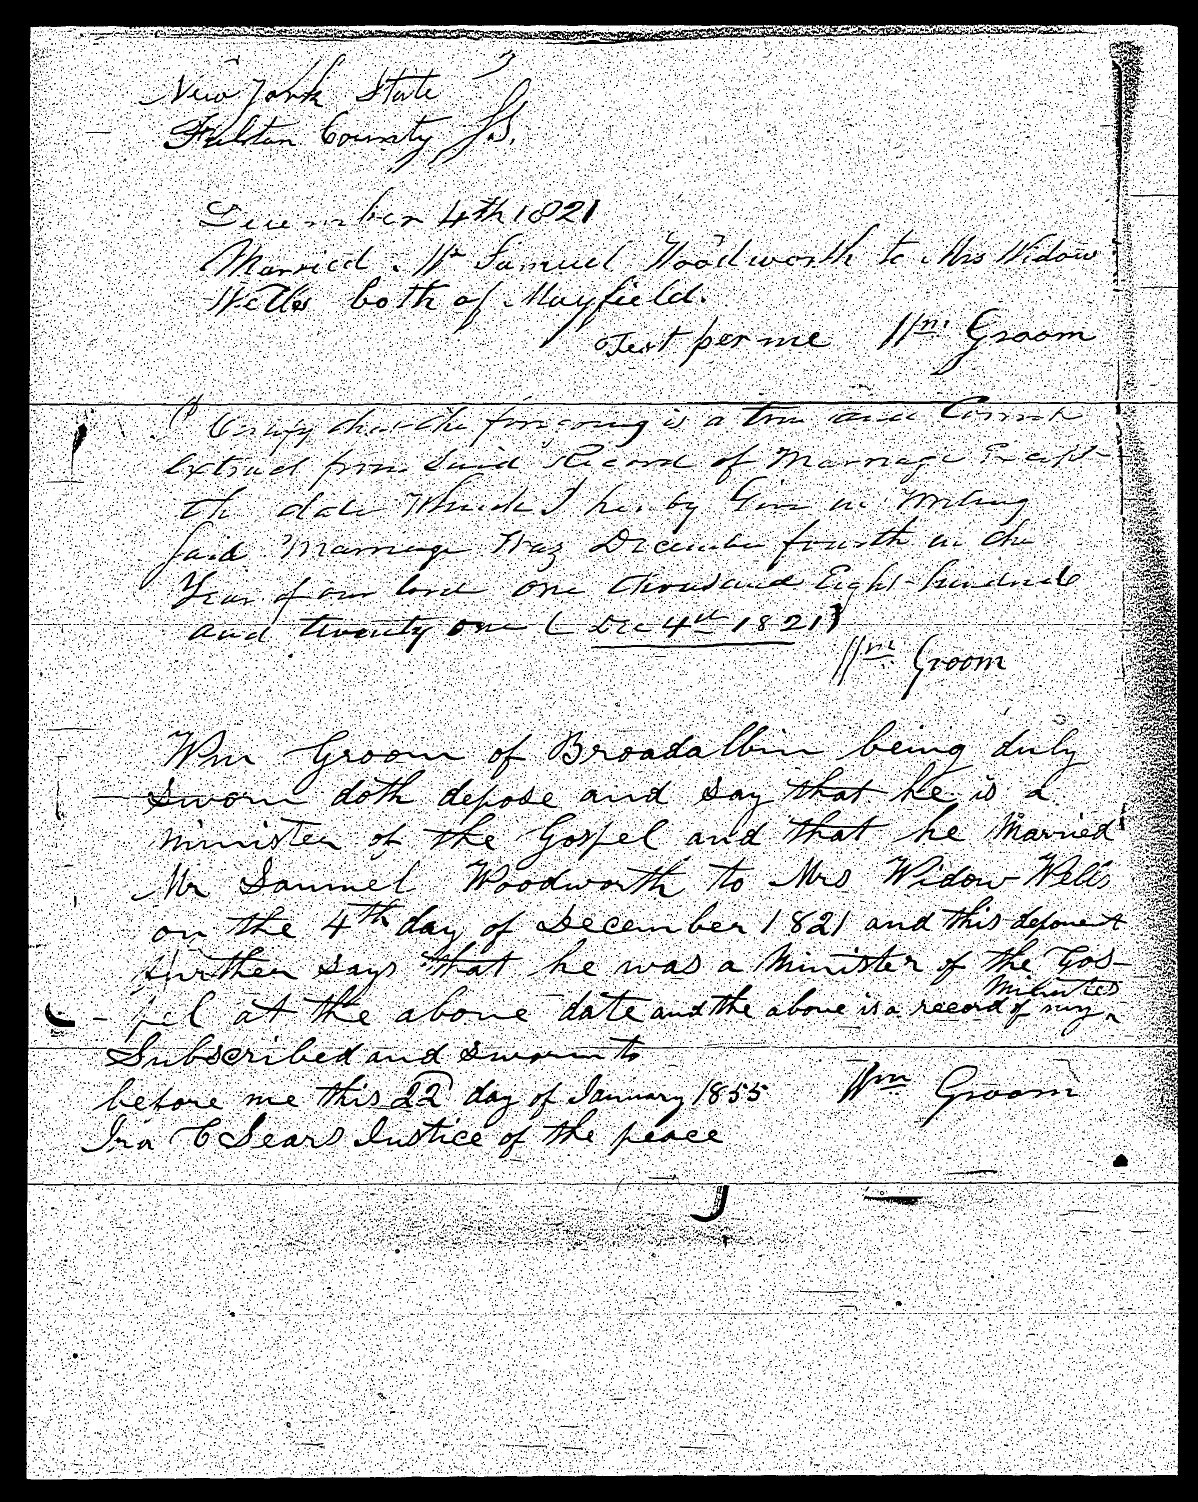 New York State
Fulton County } S.S.
December 4th 1821
Married. Mr Samuel Woodworth to Mrs Widow
Wells both of Mayfield.
Test per me Wm Groom
I Certify that the foregoing is a true and Correct
Extract from Said Record of Marriage Except
the date Which I hereby Give in Writing
Said Marriage Was December fourth in the
Year of our lord one thousand Eight hundred
and twenty one ( Dec 4th 1821)
Wm Groom
Wm Groom of Broadalbin being duly
Sworn doth depose and Say that he is a
minister of the Gospel and that he Married
Mr Samuel Woodworth to Mrs Widow Wells
on the 4th day of December 1821 and this deponent
further says that he was a Minister of the Gos-
- pel at the above date and the above is a record of my Minutes
Subscribed and sworn to
before me this 22 day of January 1855 Wm Groom
Ira C Sears Justice of the peace